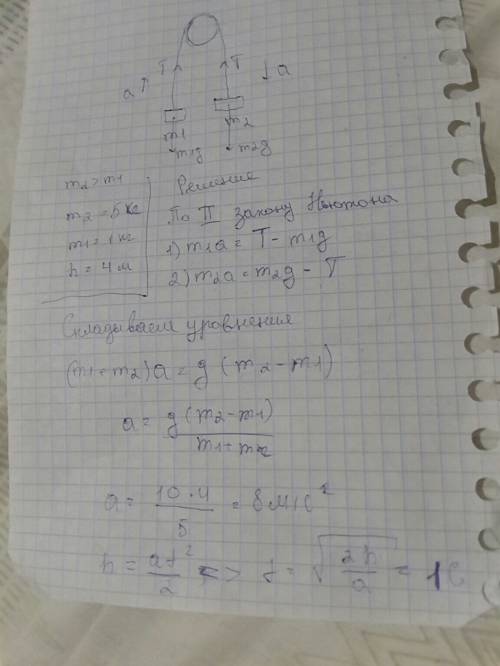 T T
a ↑ ↓ a
m1 m2
m1g m2g
m2 > m1
m2 = 5 кг
m1 = 1 кг
h = 4 м
Решение
По II закону Ньютона
1) m1a = T - m1g
2) m2a = m2g - T
Складываем уравнения
(m1 + m2)a = g (m2 - m1)
a = g (m2 - m1) / m1 + m2
a = 10 · 4 / 5 = 8 м/с²
h = at² / 2 <=> t = √(2h / a) = 1 с